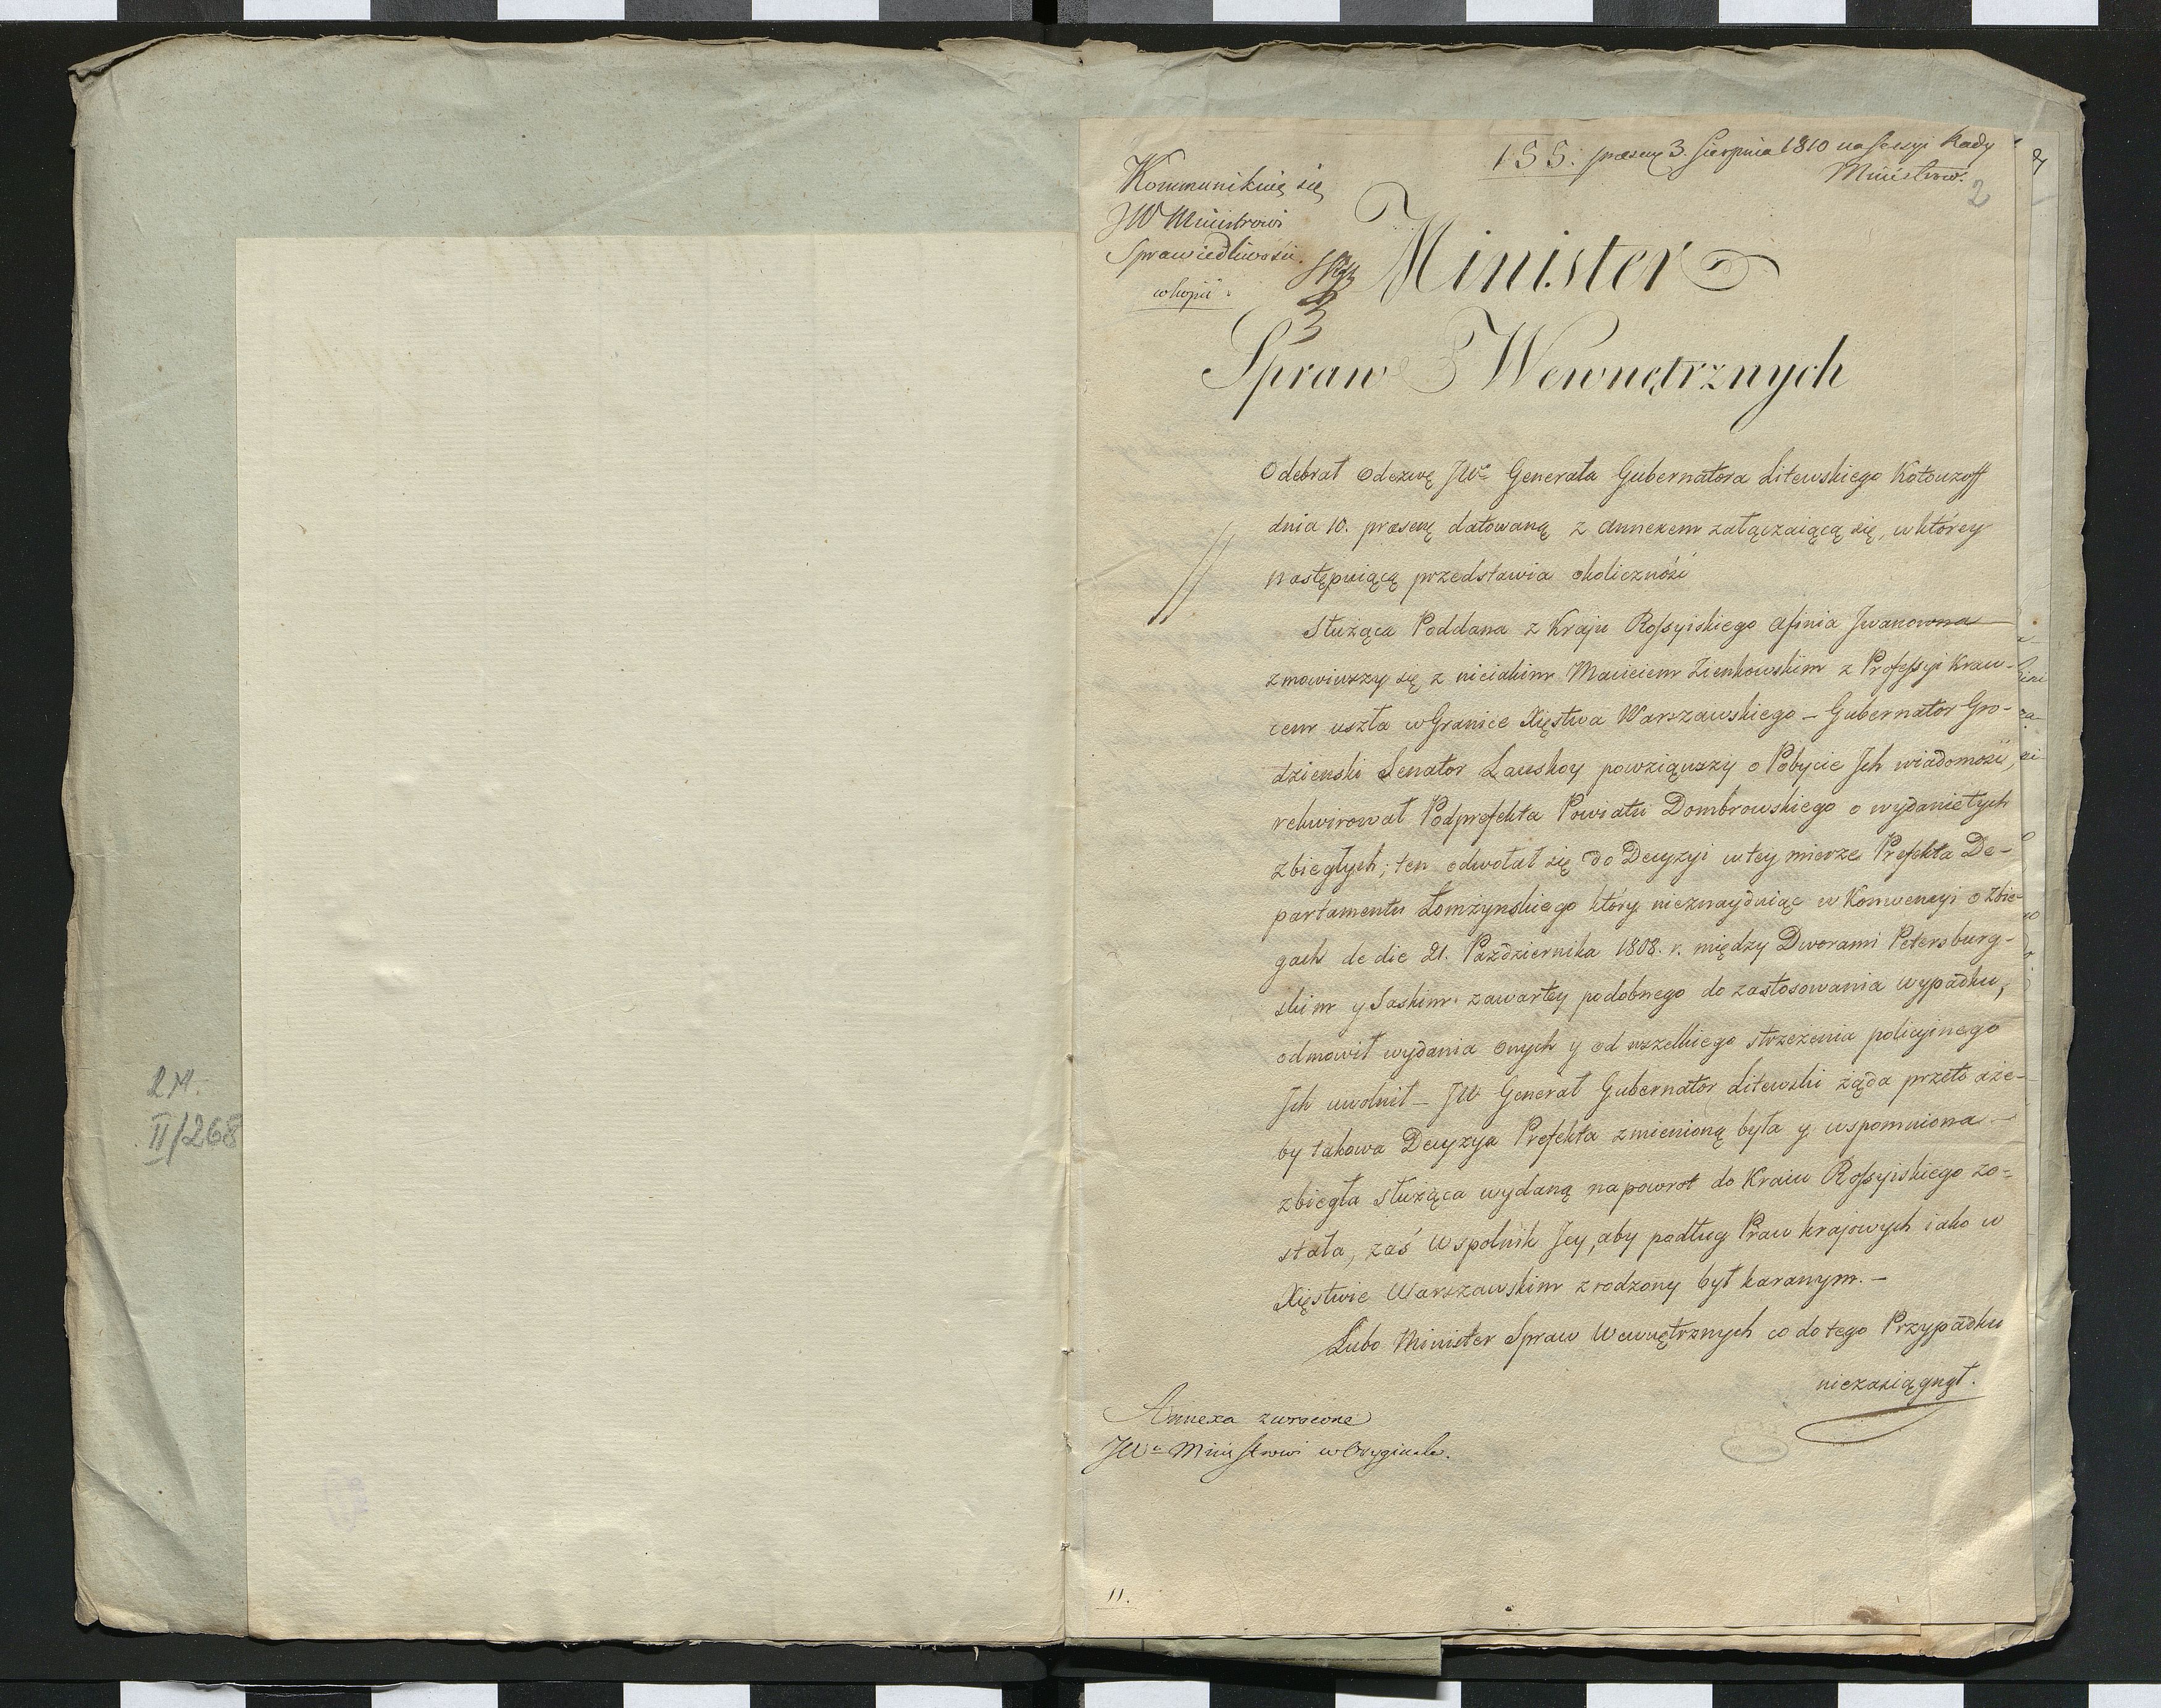 155. præsen 3. Sierpnia 1810 na Sessyi Rady
Ministrow.
2
Kommunikuię się
JW Ministrowi
Sprawiedliwości
w kopii.
Minister
Spraw Wewnętrznych
Odebrał Odezwę JWo Generała Gubernatora Litewskiego Kotouzoff
dnia 10. præsen datowaną z Annexem załączaiącą się, w którey
następuiącą przedstawia okoliczność
Służąca Poddana z Kraju Rossyiskiego Afinia Jwanowna
zmowiwszy się z nieiakim Macieiem Zienkowskim z Professyi Kraw-
cem uszła w Granice Xięstwa Warszawskiego – Gubernator Gro-
dzienski Senator Lanskoy powziąwszy o Pobycie Jch wiadomość,
rekwirował Podprefekta Powiatu Dombrowskiego o wydanie tych
zbiegłych; ten odwołał się do Decyzyi w tey mierze Prefekta De-
partamentu Łomżynskiego który nieznayduiąc w Konwencyi o Zbie-
gach de die 21. Pazdziernika 1808. r. między Dworami Petersburg-
skim y Saskim zawartey podobnego do zastosowania wypadku,
odmowił wydania Onych y od wszelkiego strzeżenia policyinego
Jch uwolnił – JW Generał Gubernator Litewski żąda przeto aże-
by takowa Decyzya Prefekta zmienioną była y wspomniona
zbiegła służąca wydaną napowrot do Kraiu Rossyiskiego zo-
stała, zaś Wspolnik Jey, aby podług Praw krajowych iako w
Xięstwie Warszawskim zrodzony był karanym. –
Lubo Minister Spraw Wewnętrznych co do tego Przypadku
niezasiągnął.
Annexa zwrócone
JWu Ministrowi w Oryginale.
11.
2M.
II/268